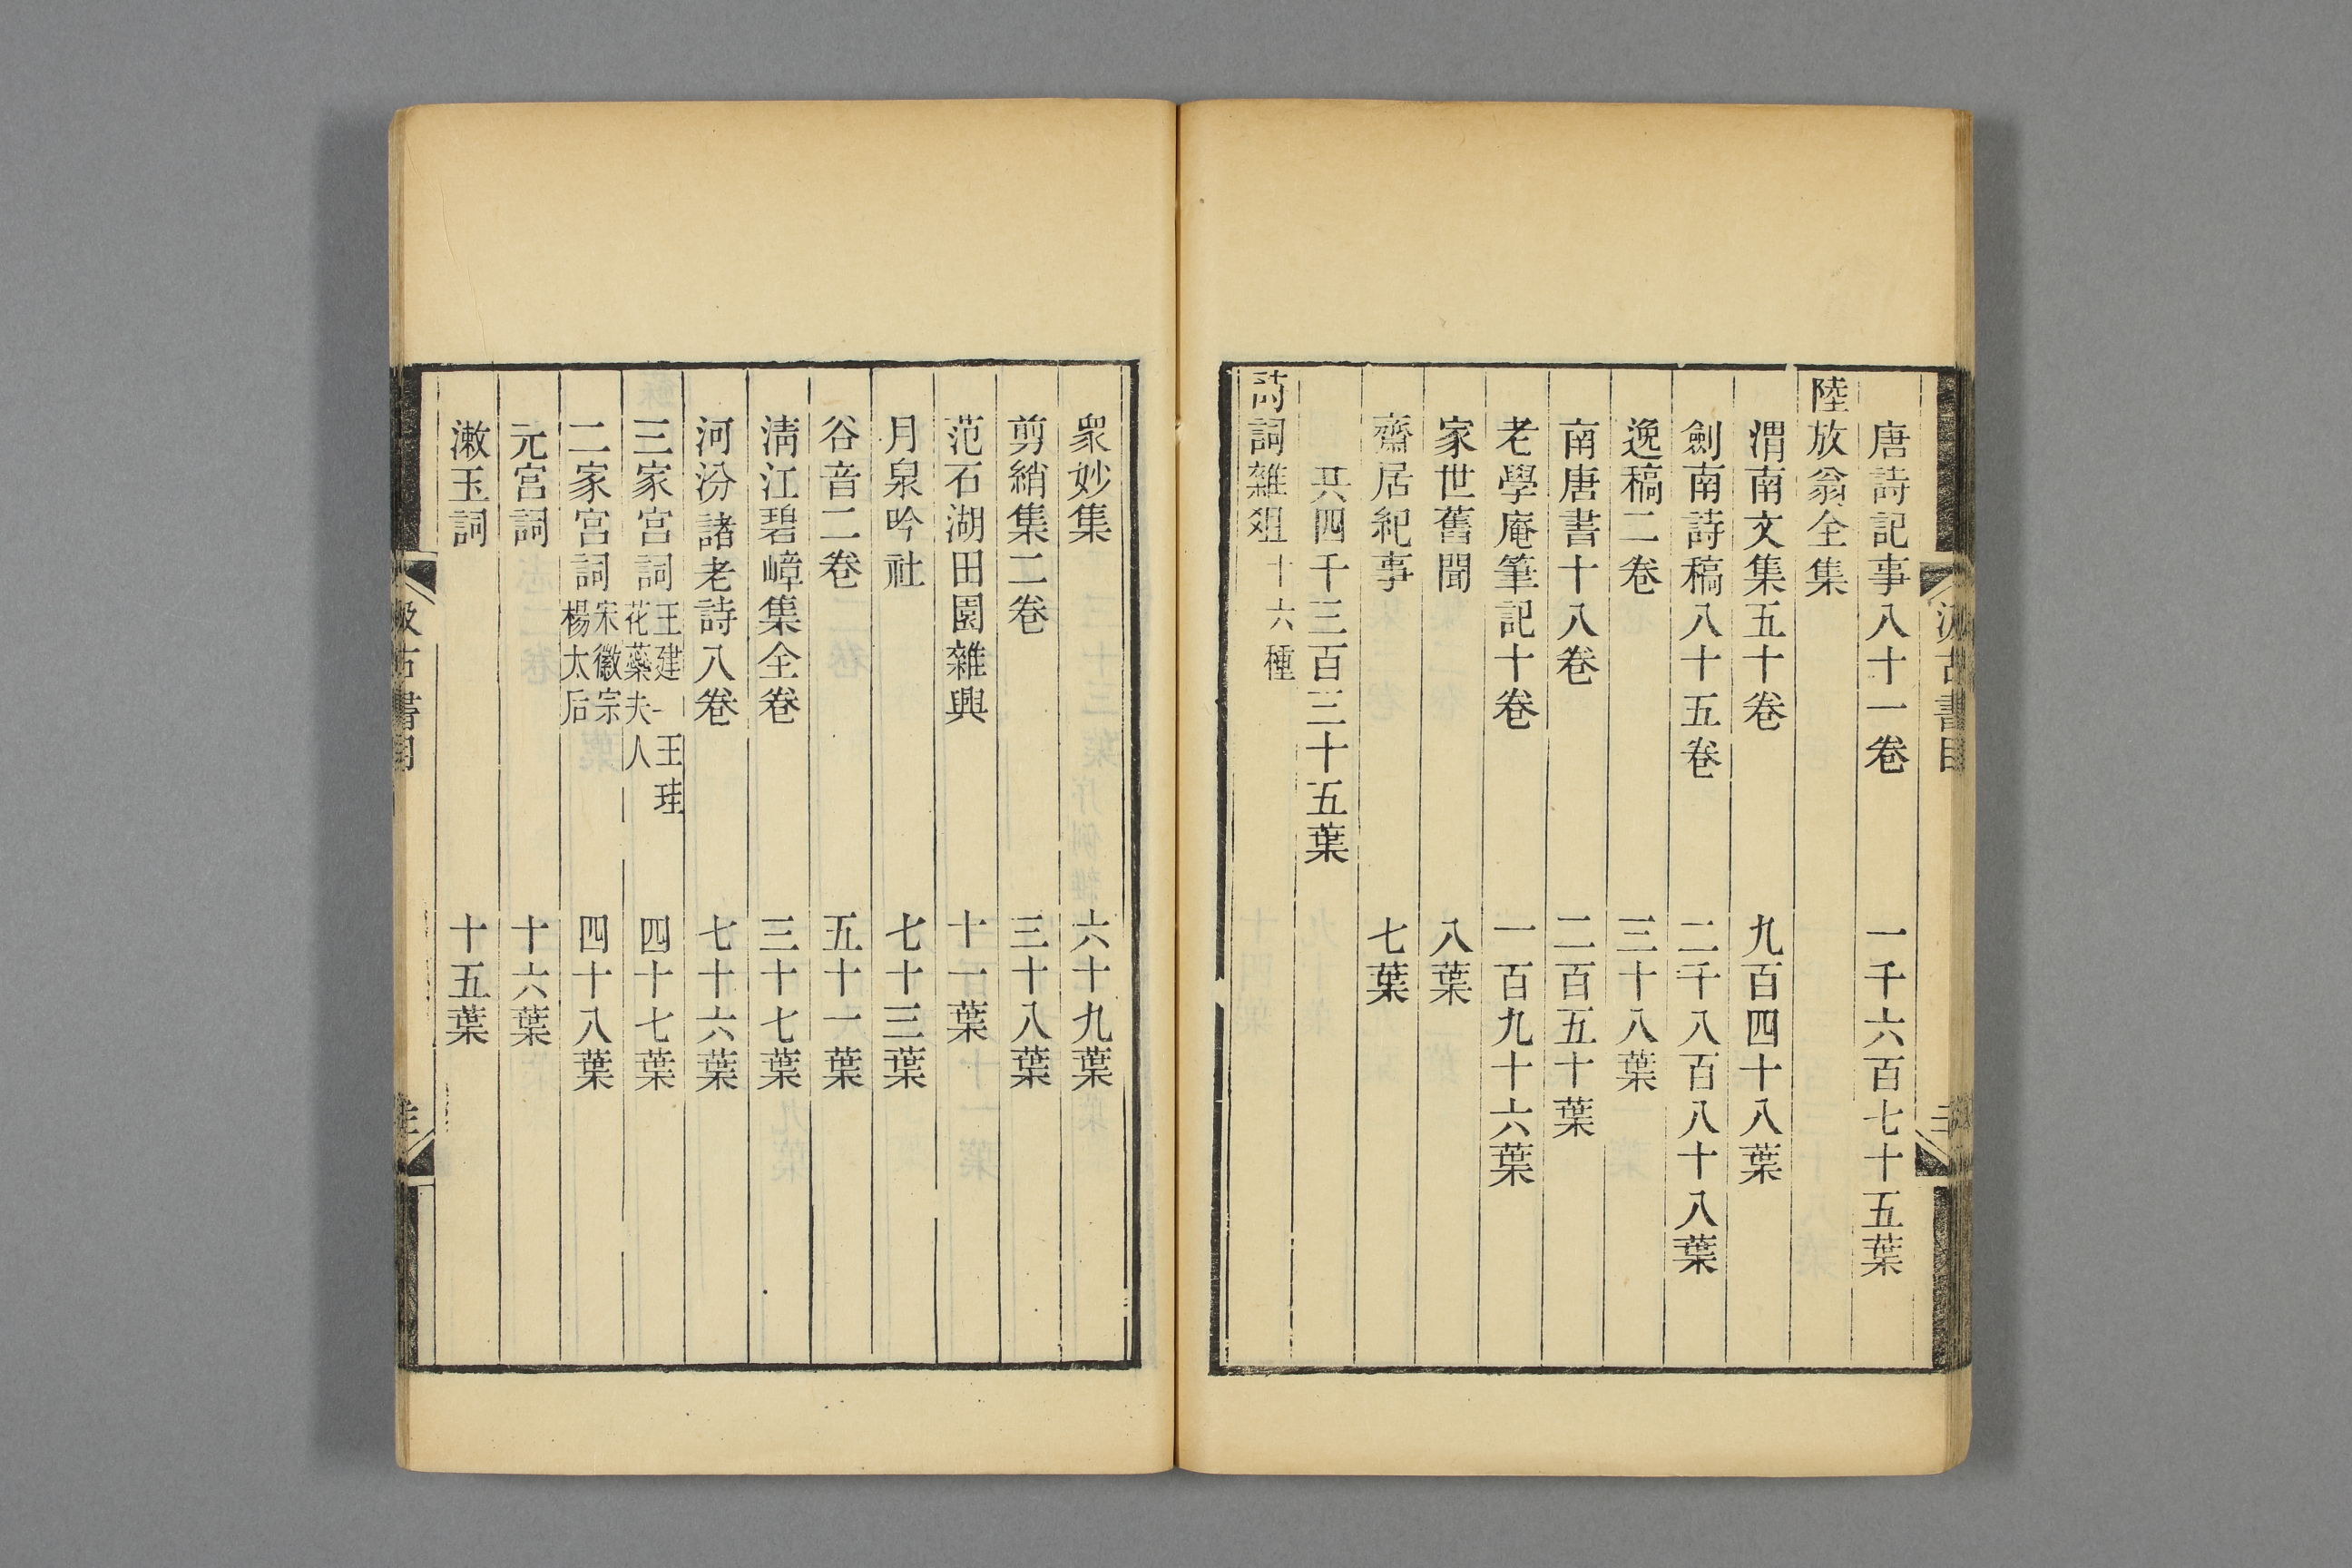 唐詩記事八十一卷 一千六百七十五葉
陸放翁全集
渭南文集五十卷 九百四十八葉
劍南詩稿八十五卷 二千八百八十八葉
逸稿二卷 三十八葉
南唐書十八卷 二百五十葉
老學庵筆記十卷 一百九十六葉
家世舊聞 八葉
齋居紀事 七葉
共四千三百三十五葉
詩詞雜俎十六種
眾妙集 六十九葉
剪綃集二卷 三十八葉
范石湖田園雜興 十一葉
月泉吟社 七十三葉
谷音二卷 五十一葉
清江碧嶂集全卷 三十七葉
河汾諸老詩八卷 七十六葉
三家宮詞 王建 王珪 花蘂夫人 四十七葉
二家宮詞 宋徽宗 楊太后 四十八葉
元宮詞 十六葉
漱玉詞 十五葉
汲古書目